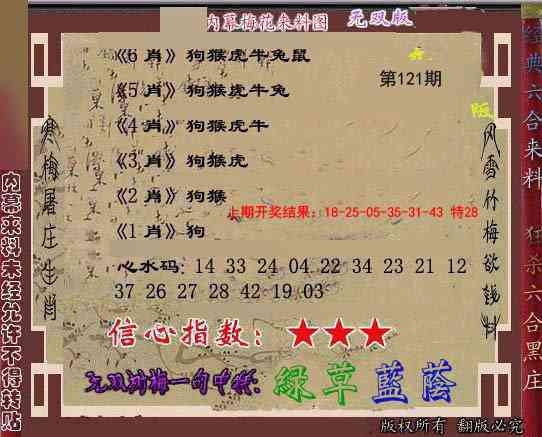 内幕梅花来料图 无双版
《6 肖》狗猴虎牛兔鼠
第121期
《5 肖》狗猴虎牛兔
《4 肖》狗猴虎牛
《3 肖》狗猴虎
《2 肖》狗猴
上期开奖结果：18-25-05-35-31-43 特28
《1 肖》狗
心水码：14 33 24 04 22 34 23 21 12
37 26 27 28 42 19 03
信心指数：★★★
绿草蓝荫
版权所有 翻版必究
寒梅屠庄生肖
风雪竹梅欲钱料
内幕来料未经允许不得转贴
经典六合来料 狂杀六合黑庄